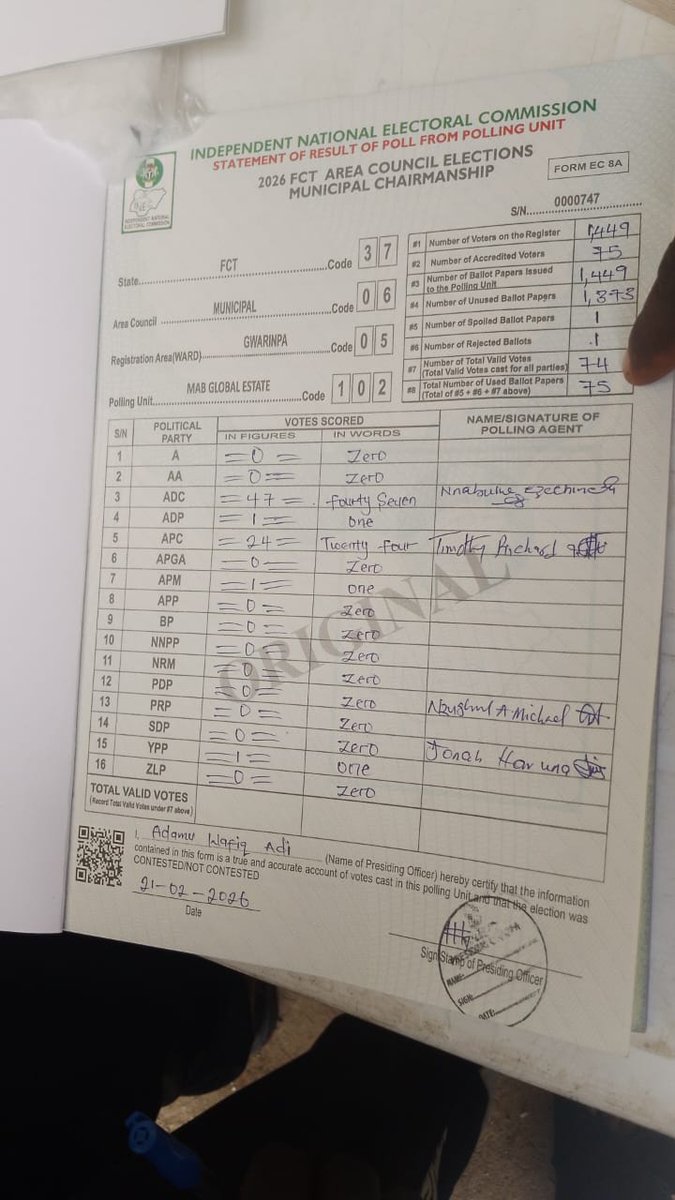 INDEPENDENT NATIONAL ELECTORAL COMMISSION
STATEMENT OF RESULT OF POLL FROM POLLING UNIT
2026 FCT AREA COUNCIL ELECTIONS
MUNICIPAL CHAIRMANSHIP
FORM EC 8A
INDEPENDENT NATIONAL ELECTORAL COMMISSION
S/N 0000747
State FCT Code 3 7
Area Council MUNICIPAL Code 0 6
Registration Area(WARD) GWARINPA Code 0 5
Polling Unit MAB GLOBAL ESTATE Code 1 0 2
#1 Number of Voters on the Register 1,449
#2 Number of Accredited Voters 75
#3 Number of Ballot Papers Issued to the Polling Unit 1,449
#4 Number of Unused Ballot Papers 1,373
#5 Number of Spoiled Ballot Papers 1
#6 Number of Rejected Ballots 1
#7 Number of Total Valid Votes (Total Valid Votes cast for all parties) 74
#8 Total Number of Used Ballot Papers (Total of #5 + #6 + #7 above) 75
S/N POLITICAL PARTY VOTES SCORED NAME/SIGNATURE OF POLLING AGENT
IN FIGURES IN WORDS
1 A =0= Zero
2 AA =0= Zero
3 ADC =47= fourty Seven
4 ADP =1= one
5 APC =24= Twenty four Timothy Richard
6 APGA =0= Zero
7 APM =1= one
8 APP =0= Zero
9 BP =0= Zero
10 NNPP =0= Zero
11 NRM =0= Zero
12 PDP =0= Zero
13 PRP =0= Zero A Michael
14 SDP =0= Zero
15 YPP =1= one Jonah Haruna
16 ZLP =0= Zero
TOTAL VALID VOTES
(Record Total Valid Votes under #7 above)
ORIGINAL
I, Adamu Wafiq Adi (Name of Presiding Officer) hereby certify that the information
contained in this form is a true and accurate account of votes cast in this polling Unit and that the election was
CONTESTED/NOT CONTESTED
21-02-2026
Date
Sign/Stamp of Presiding Officer
NAME:
SIGN:
DATE: